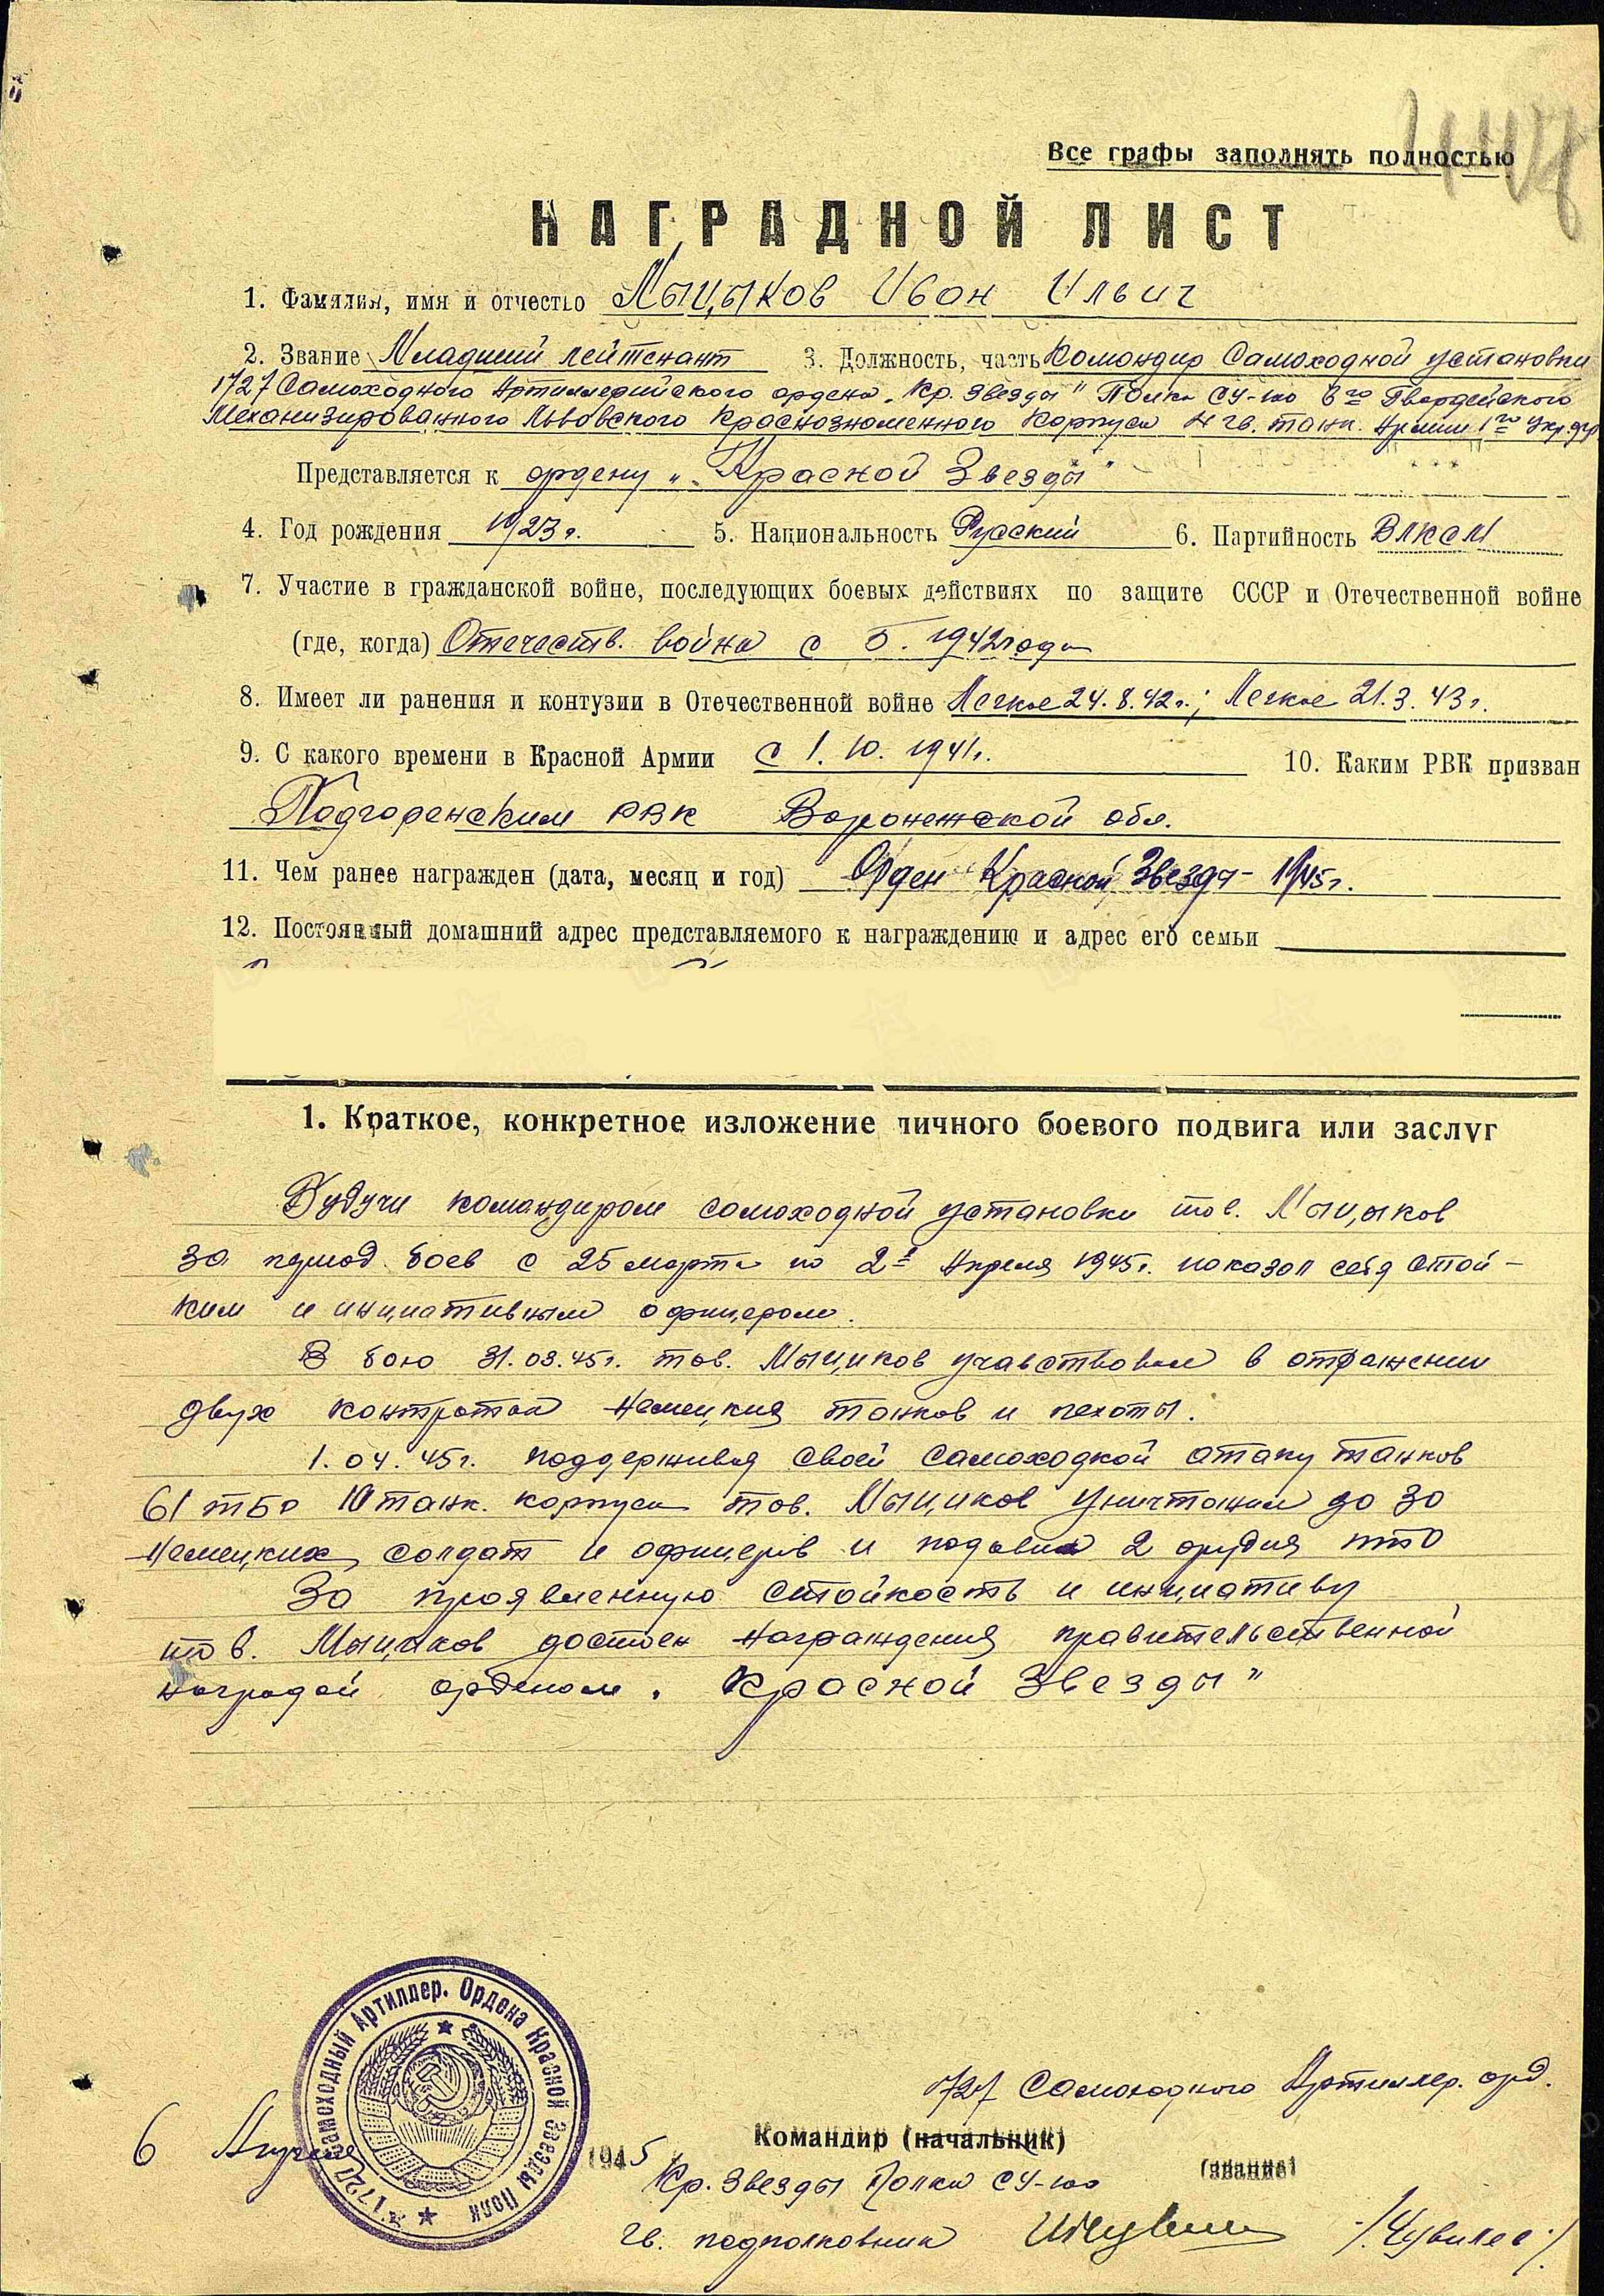 Все графы заполнять полностью
НАГРАДНОЙ ЛИСТ
1. Фамилия, имя и отчество Мыцыков Иван Ильич
2. Звание Младший лейтенант 3. Должность, часть Командир Самоходной установки
1727 Самоходного Артиллерийского ордена „Кр. Звезды" Полка СУ-100 6го Гвардейского
Механизированного Львовского Краснознаменного Корпуса 4 гв. танк. Армии 1го Укр. фр.
Представляется к ордену „Красной Звезды"
4. Год рождения 1923 г. 5. Национальность Русский 6. Партийность ВЛКСМ
7. Участие в гражданской войне, последующих боевых действиях по защите СССР и Отечественной войне
(где, когда) Отечеств. война с 5. 1942 года
8. Имеет ли ранения и контузии в Отечественной войне Легкое 24.8.42 г.; Легкое 21.3.43 г.
9. С какого времени в Красной Армии с 1.10.1941 г. 10. Каким РВК призван
Подгоренским РВК Воронежской обл.
11. Чем ранее награжден (дата, месяц и год) Орден Красной Звезды - 1945 г.
12. Постоянный домашний адрес представляемого к награждению и адрес его семьи
1. Краткое, конкретное изложение личного боевого подвига или заслуг
Будучи командиром самоходной установки тов. Мыцыков
за период боев с 25 марта по 2е Апреля 1945 г. показал себя стой-
ким и инициативным офицером.
В бою 31.03.45 г. тов. Мыциков учавствовал в отражении
двух контратак немецких танков и пехоты.
1.04.45 г. поддерживая своей самоходкой атаку танков
61 тбр 10 танк. корпуса тов. Мыциков уничтожил до 30
немецких солдат и офицеров и подавил 2 орудия ПТО
За проявленную стойкость и инициативу
тов. Мыциков достоен награждения правительственной
наградой орденом „Красной Звезды"
1727 Самоходный Артиллер. Ордена Красной Звезды Полк
1727 Самоходного Артиллер. орд.
Командир (начальник)
(звание)
6 Апреля 1945 г.
Кр. Звезды Полка СУ-100
Гв. подполковник /Чувилев/